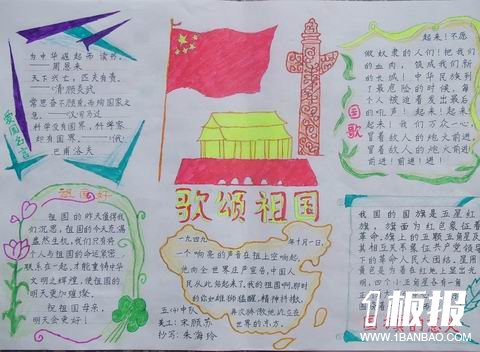 爱国名言
为中华崛起而读书。
——周恩来
天下兴亡，匹夫有责。
——(清)顾炎武
常思奋不顾身，而殉国家之
急。——(汉)司马迁
科学没有国界，科学家
却有国界。——(俄)
巴甫洛夫
国歌
起来！不愿
做奴隶的人们！把我们
的血肉，筑成我们新
的长城！中华民族到
了最危险的时候，每
个人被迫着发出最后
的吼声！起来！起来！
起来！我们万众一心，
冒着敌人的炮火前进，
冒着敌人的炮火前进！
前进！前进！进！
歌颂祖国
祖国好
祖国的昨天值得我
们沉思，祖国的今天充满
盎然生机，我们只有将
个人与祖国的命运紧密
联系在一起，才能重铸中华
文明之辉煌，使祖国的
明天更加璀璨。
祝祖国母亲，
明天会更好！
一九四九年十月一日，
一个响亮的声音在祖国上空响起，
他向全世界庄严宣告，中国人
民从此站起来了，我的祖国啊，那时
的你如雄狮猛醒，精神抖擞，
再次骄傲地屹立在
世界的东方。
五(4)中队
美工：宋颜苏
抄写：朱海玲
我国的国旗是五星红
旗，旗面为红色象征着
革命。旗上的五颗五角星及
其相互关系象征共产党领导
下的革命人民大团结。星用
黄色是为着在红地上显出光
明，四个小五角星各有一
板报
WWW.1BANBAO.COM